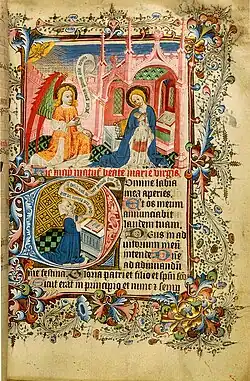 matutine beate marie virginis
Domine labia
mea aperies,
Et os meum
annunciabit
laudem tuam,
Deus in ad
iutorium meū
intende. Dn̄e
ad adiuvandū
me festina. Gloria patri et filio et spūi scō
Sicut erat in principio et nunc et semp